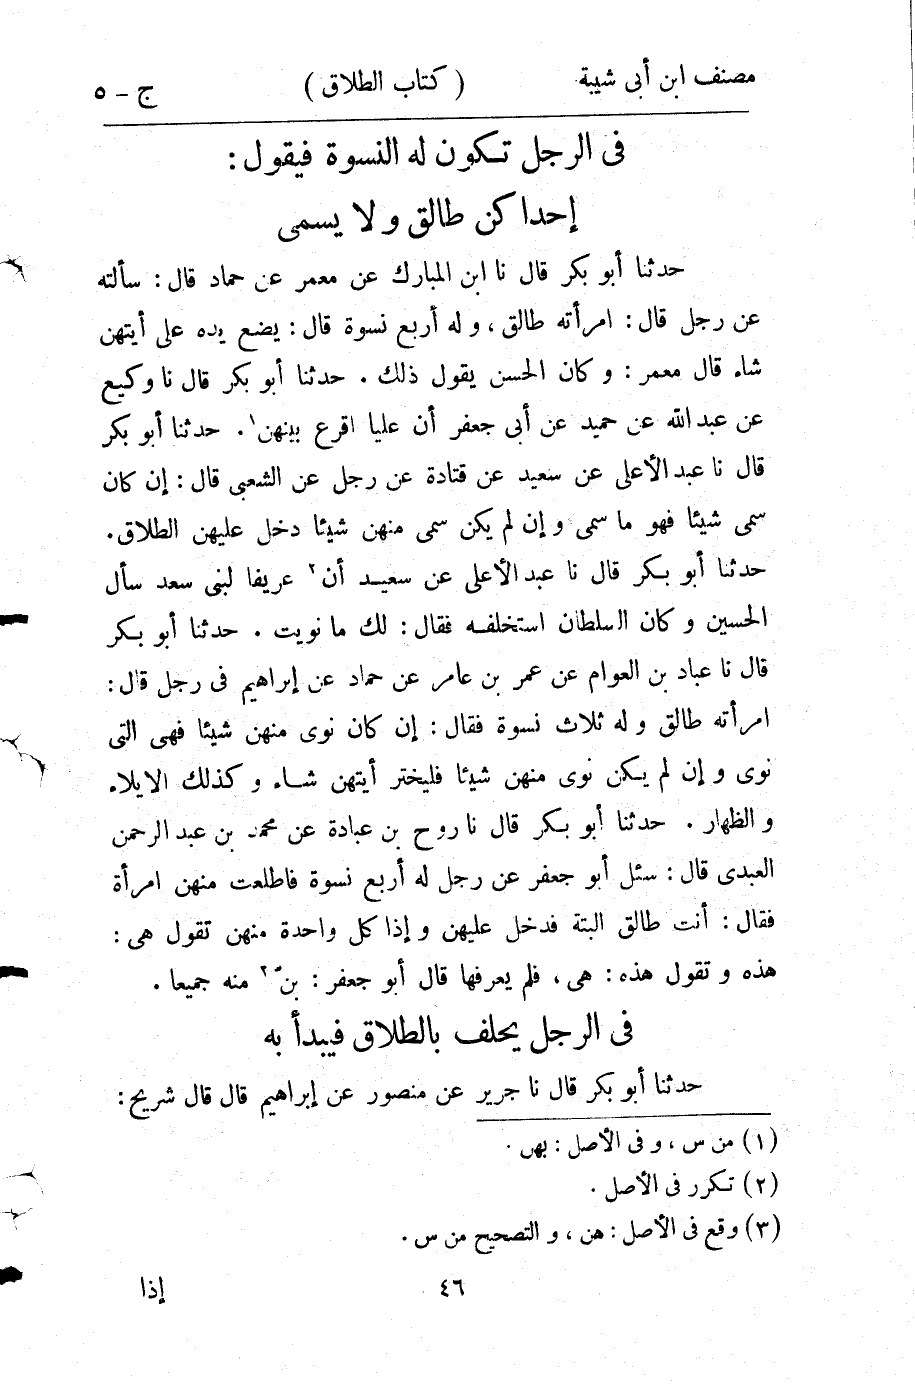 مصنف ابن أبى شيبة ( كتاب الطلاق ) ج - ٥
فى الرجل تكون له النسوة فيقول :
إحداكن طالق و لا يسمى
حدثنا أبو بكر قال نا ابن المبارك عن معمر عن حماد قال : سألته
عن رجل قال : امرأته طالق ، و له أربع نسوة قال : يضع يده على أيتهن
شاء قال معمر : و كان الحسن يقول ذلك . حدثنا أبو بكر قال نا وكيع
عن عبد الله عن حميد عن أبى جعفر أن عليا اقرع بينهن١ . حدثنا أبو بكر
قال نا عبد الأعلى عن سعيد عن قتادة عن رجل عن الشعبى قال : إن كان
سمى شيئا فهو ما سمى و إن لم يكن سمى منهن شيئا دخل عليهن الطلاق .
حدثنا أبو بكر قال نا عبد الأعلى عن سعيد أن٢ عريفا لبنى سعد سأل
الحسين و كان السلطان استخلفه فقال : لك ما نويت . حدثنا أبو بكر
قال نا عباد بن العوام عن عمر بن عامر عن حماد عن إبراهيم فى رجل قال :
امرأته طالق و له ثلاث نسوة فقال : إن كان نوى منهن شيئا فهى التى
نوى و إن لم يكن نوى منهن شيئا فليختر أيتهن شاء و كذلك الايلاء
و الظهار . حدثنا أبو بكر قال نا روح بن عبادة عن محمد بن عبد الرحمن
العبدى قال : سئل أبو جعفر عن رجل له أربع نسوة فاطلعت منهن امرأة
فقال : أنت طالق البتة فدخل عليهن و إذا كل واحدة منهن تقول هى :
هذه و تقول هذه : هى ، فلم يعرفها قال أبو جعفر : بنّ٢ منه جميعا .
فى الرجل يحلف بالطلاق فيبدأ به
حدثنا أبو بكر قال نا جرير عن منصور عن إبراهيم قال قال شريح :
(١) من س ، و فى الأصل : بهن .
(٢) تكرر فى الأصل .
(٣) وقع فى الأصل : هن ، و التصحيح من س .
٤٦ إذا